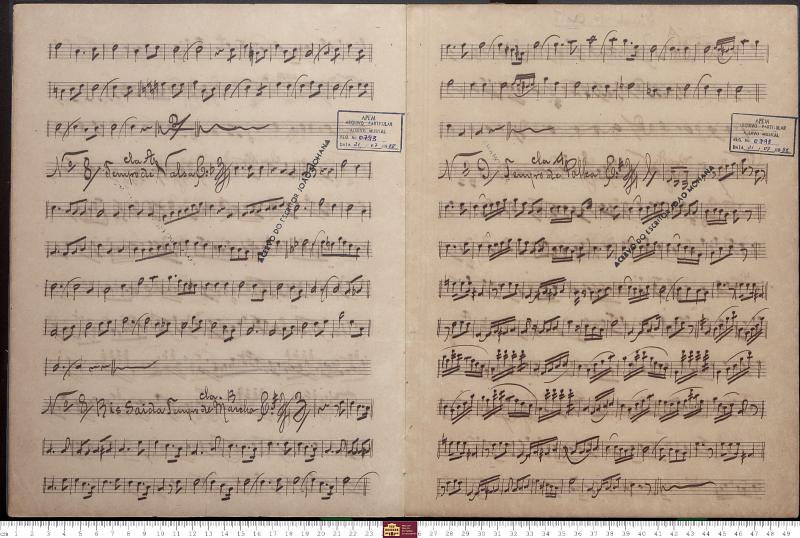 APEM
ARQUIVO PARTICULAR
ACERVO MUSICAL
REG. Nº 0793
Data 21 07
cla. A
Nº 8 Tempo de Valsa
ACERVO DO ESCRITOR JOÃO MOHANA
cla. B
Nº 8 Bis Saida Tempo de Marcha
APEM
ARQUIVO PARTICULAR
ACERVO MUSICAL
REG. Nº 0793
cla. A
Nº 9 Tempo de Polka
ACERVO DO ESCRITOR JOÃO MOHANA
cm 1 2 3 4 5 6 7 8 9 10 11 12 13 14 15 16 17 18 19 20 21 22 23 26 27 28 29 30 31 32 33 34 35 36 37 38 39 40 41 42 43 44 45 46 47 48 49